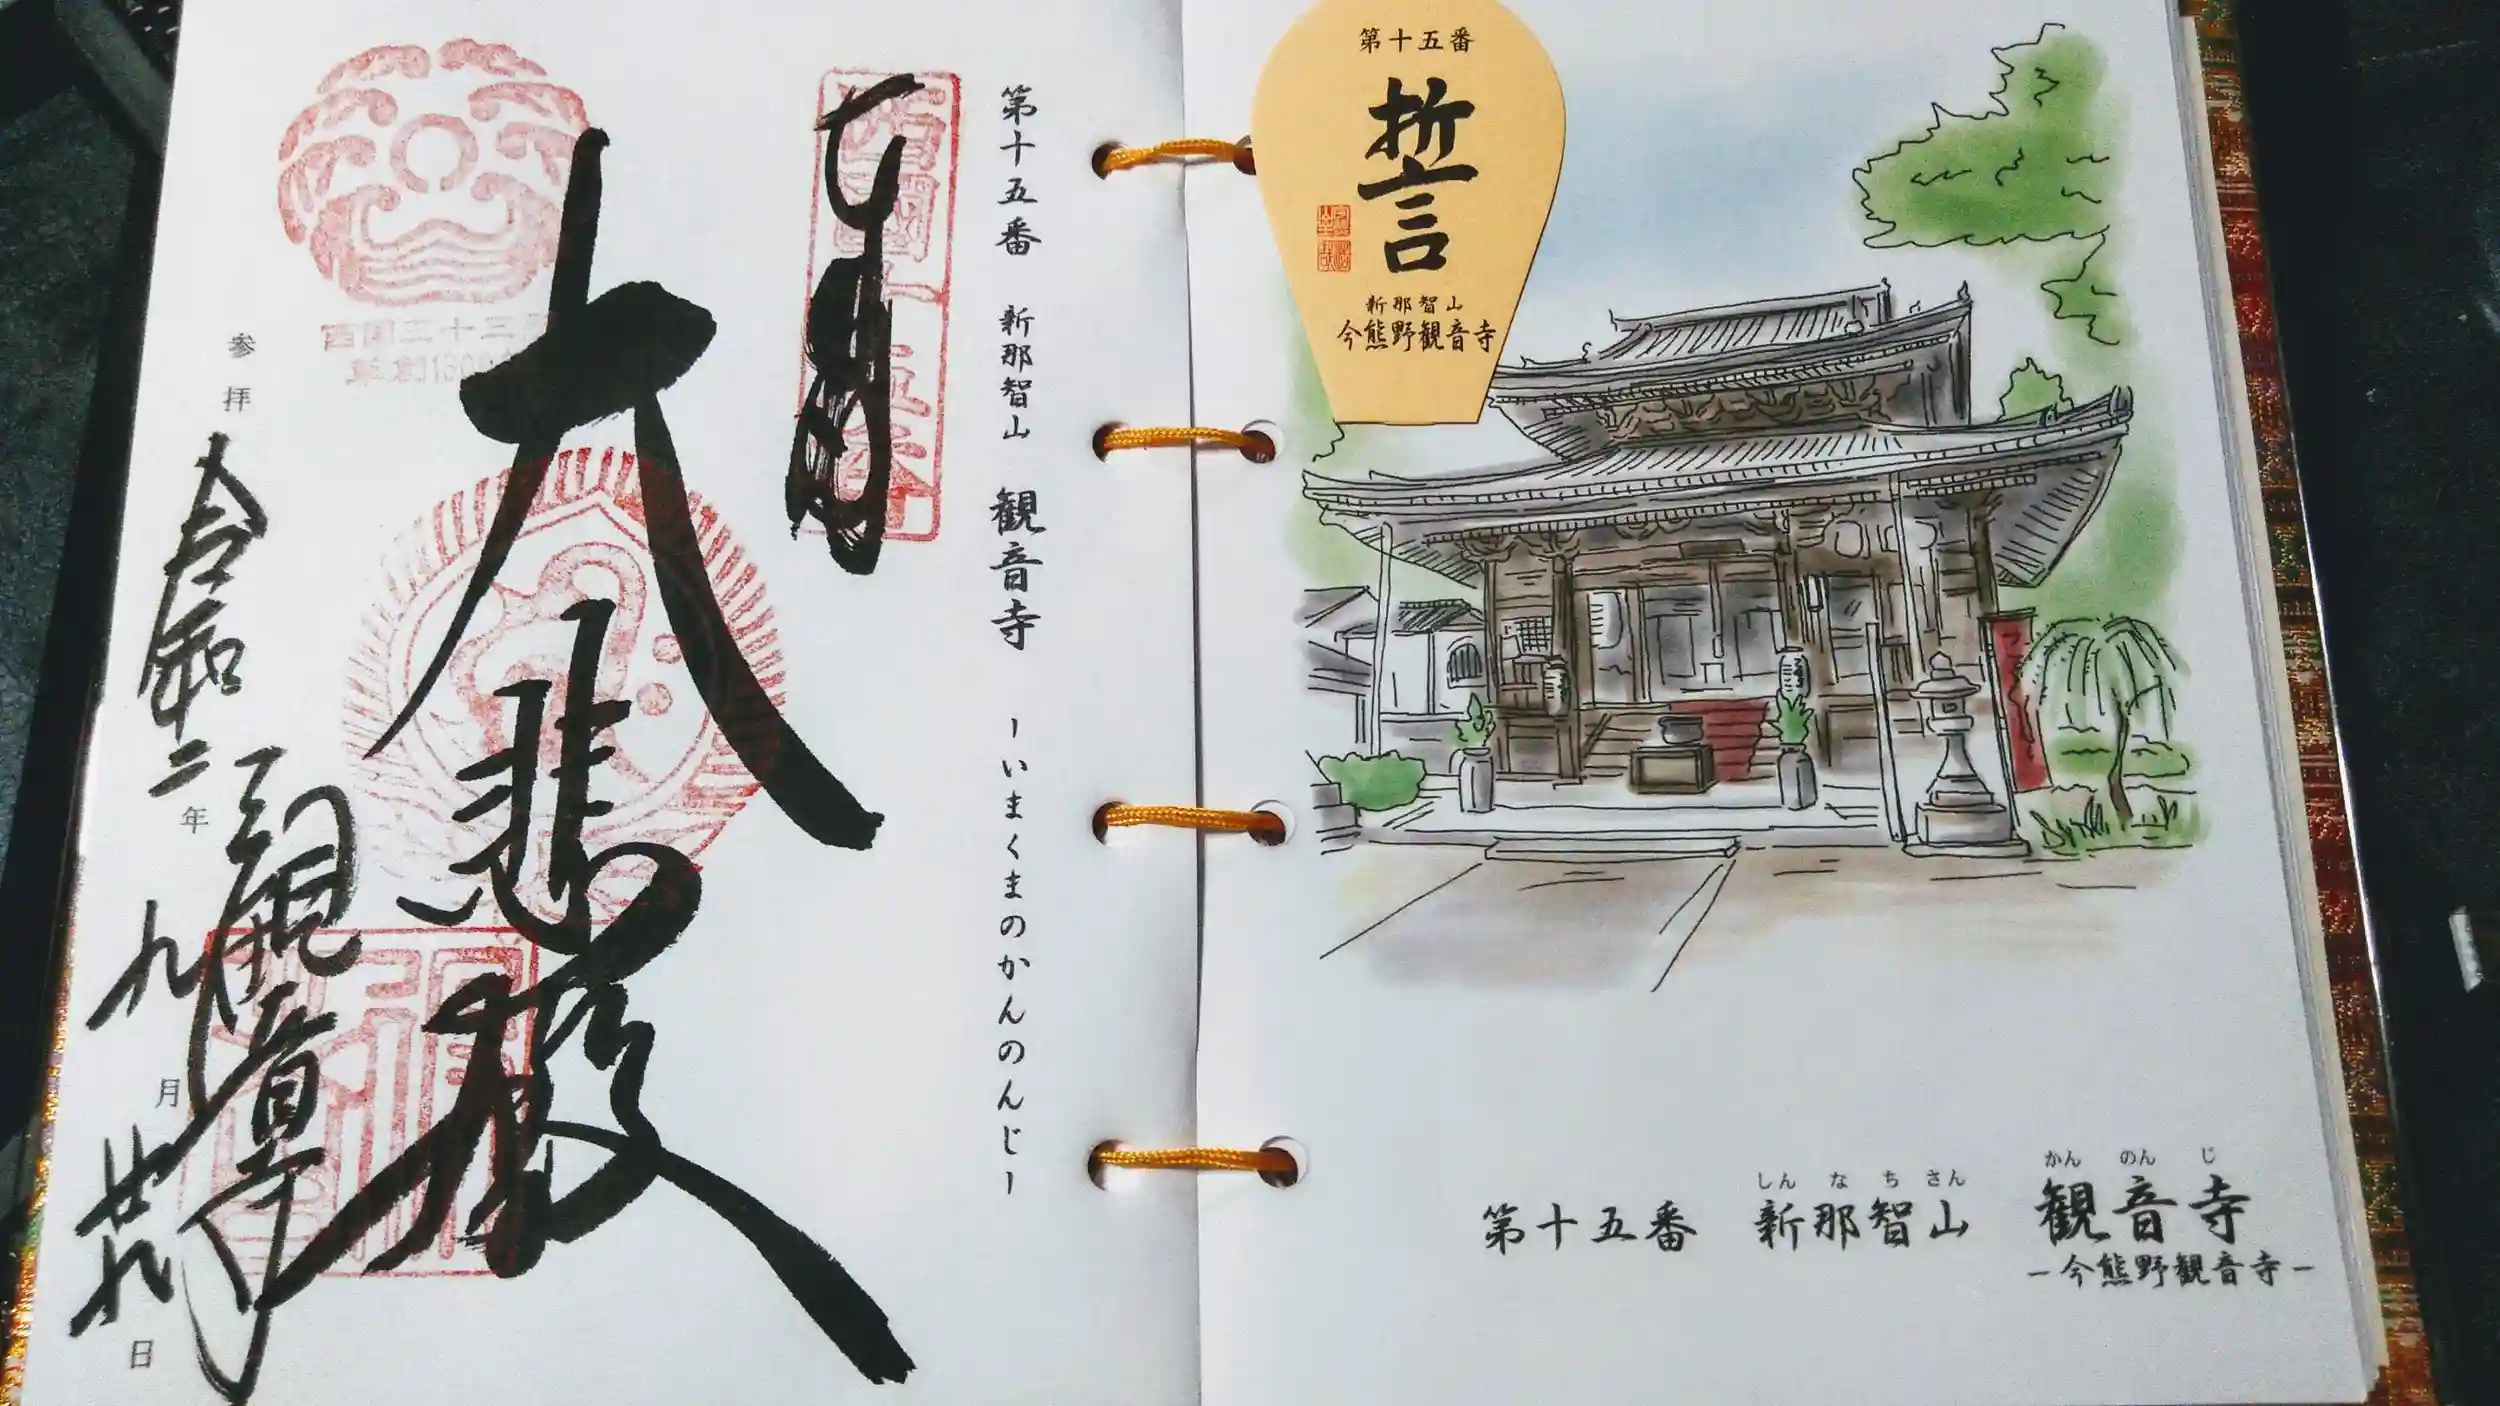 第十五番 新那智山 観音寺 ーいまくまのかんのんじー
大悲殿
西国三十三
草創
参拝 令和二年 九月 廿九日
観音寺
第十五番
誓
新那智山
今熊野観音寺
しんなちさん かんのんじ
第十五番 新那智山 観音寺
ー今熊野観音寺ー